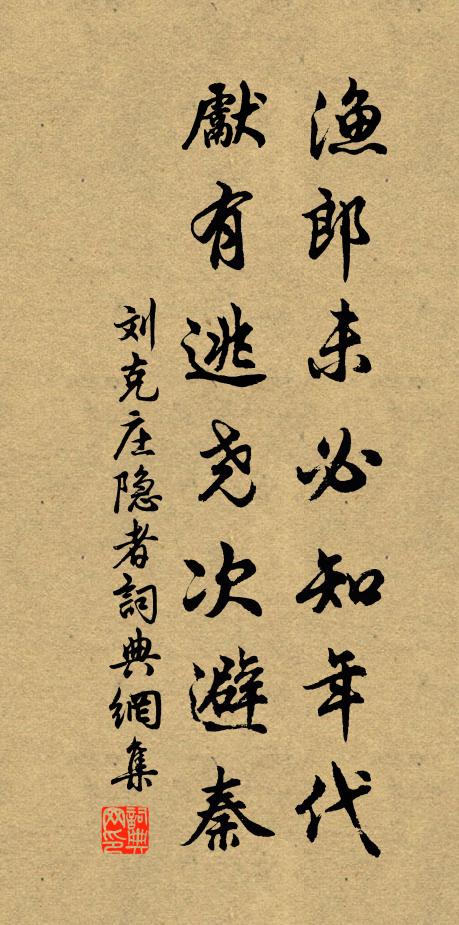 渔郎未必知年代
獻有逃尧次避秦
刘克庄隐者詞典網集
詞典网印